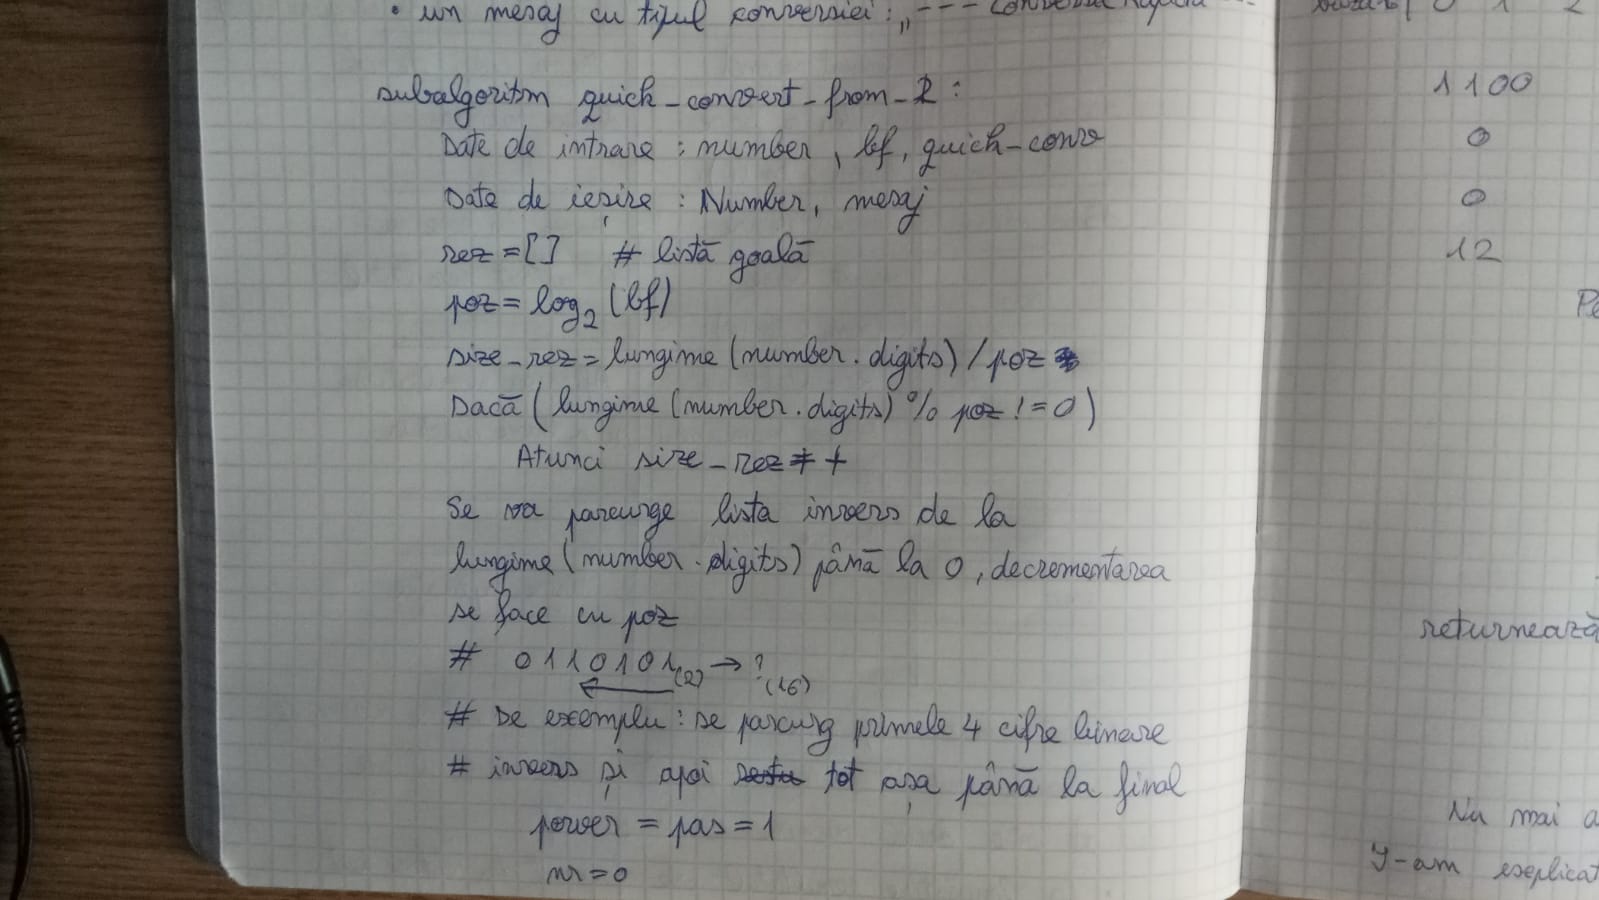 • un mesaj cu tipul conversiei: „---
subalgoritm quick-convert-from-2:
Date de intrare: number, bf, quick-conv
Date de ieșire: Number, mesaj
rez=[] # listă goală
poz=log2(bf)
size-rez=lungime(number.digits)/poz
Dacă(lungime(number.digits)%poz!=0)
Atunci size-rez++
Se va parcurge lista invers de la
lungime(number.digits) până la 0, decrementarea
se face cu poz
# 0110101(2) → ?(16)
# De exemplu: se parcurg primele 4 cifre binare
# invers și apoi tot așa până la final
power = pas = 1
nr=0
0 1 2
1100
0
0
12
returnează
Nu mai a